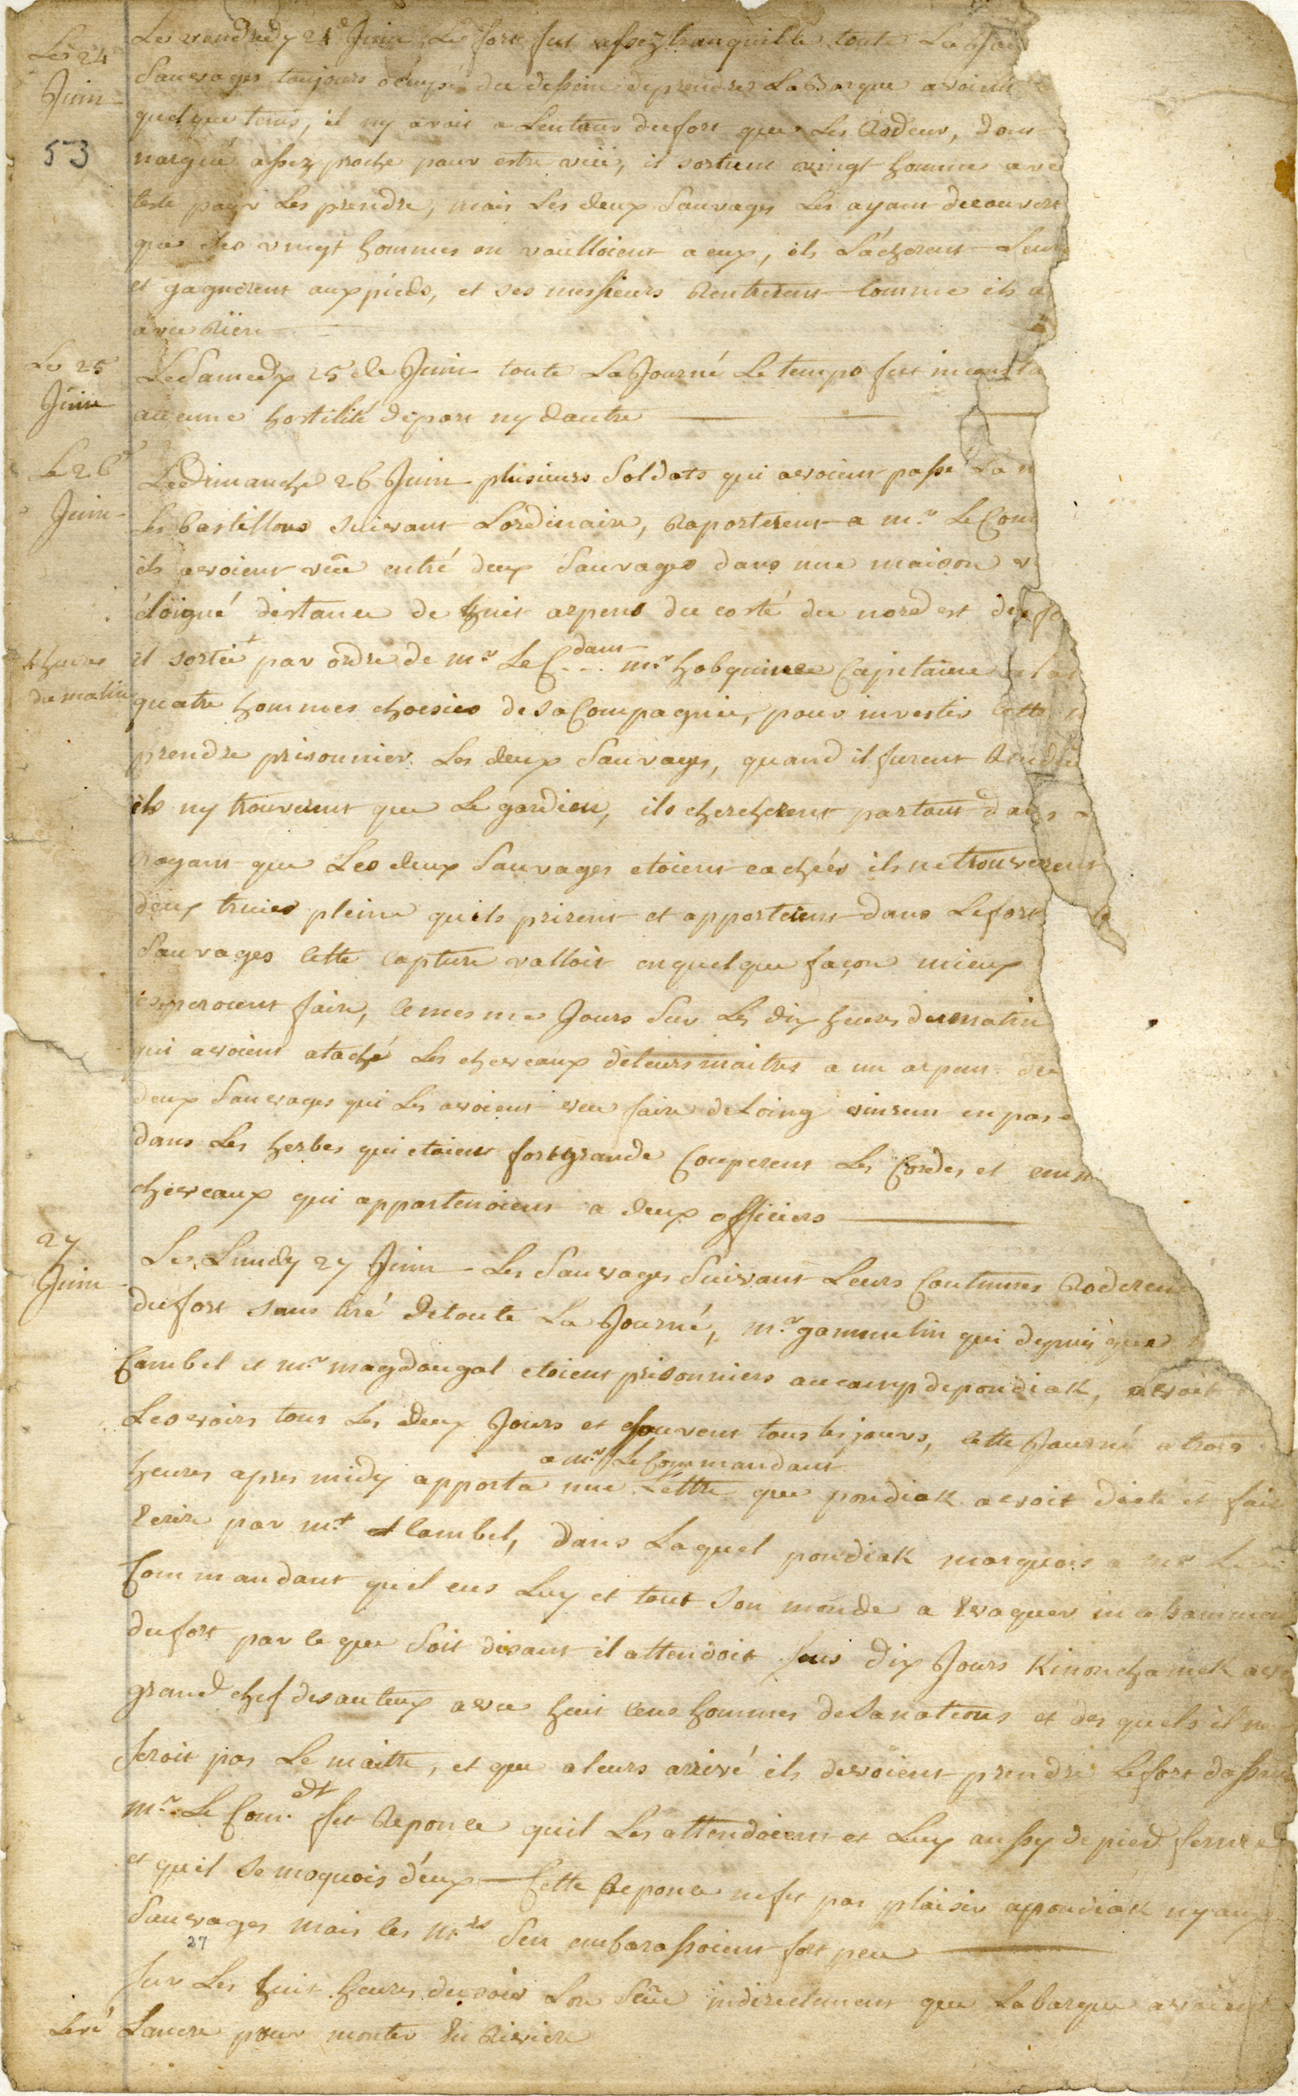 Le 24
Juin
53
Le vendredy 24e Juin Le fort fut assez tranquille toute La
Sauvages toujours ocupé du dessein de prendre La Barque avoient
quelque tems, il ny avoit a Lentour du fort que Les Rodeur, dont
nargué assez proche pour estre vüe, il sortient vingt homme ave
teste pour Les prendre, mais Les deux Sauvages Les ayant decouvert
que des vingt hommes en voulloient a eux, ils Lácherent Leur
et gagnerent aux pieds, et ses messieurs Rentrerent Comme ils a
avec Riën
Le 25
Juin
Le Samedy 25 de Juin toute La Journé Le temps fut inconsta
aucune hostilité depart ny dautre
Le 26e
Juin
Le Dimanche 26 Juin plusieurs Soldats qui avoient passé La n
Les bastillons suivant Lordinaire, Raporterent a mr. Le Com
ils avoient vûe entré deux Sauvages dans une maison v
éloigné distance de huit arpens du costé du nord est du fo
4 heures
du matin
il sortit par ordre de mr Le C...dant mr hobquince Capitaine
quatre hommes choisies de sa Compagnie, pour investir cette
prendre prisonnier Les deux Sauvages, quand il furent Rendu
ils ny trouverent que Le gardien, ils chercherent partout dans
royant que Les deux Sauvages etoient cachées ils ne trouverent
deux truies pleine quils prirent et apporterent dans Le fort
Sauvages Cette Capture valloit en quelque façon mieux
esperoient faire, Le mesme Jours Sur Les dix heures du matin
qui avoient ataché Les cheveaux de leurs maitres a un arpent du
deux Sauvages qui Les avoient vue faire de Loing vinrent en pas
dans Les herbes qui etoient fort grande Couperent Les Cordes et emm
cheveaux qui appartenoient a deux officiers
27
Juin
Le Lundy 27 Juin Les Sauvages Suivant Leurs Coutumes Roderent
du fort sans tiré de toute La Journé, mr gammelin qui depuis que
Cambel et mr magdougal etoient prisonniers au camp de pondiak, avoit
Les voirs tous Les deux Jours et souvent tous les jours, Cette Journé a trois
a mr Le Commandant
heures apres midy apporta une Léttre que pondiak avoit dicté et fait
Ecrire par mr Cambel, dans Laquel pondiak marquois a mr Le
Commandant quil eus Luy et tout son monde a Evaquer incessamment
du fort par ce que Soit disant il attendoit sous dix Jours Kinonchamek
grand chef des auteux avec huit cens hommes de Sa nations et des quels il ne
seroit pas Le maitre, et que a leurs arrivé ils devoient prendre Le fort dassau
mr Le Com.dt fit Reponce quil Les attendoient et Luy aussy de pied ferme
et quil se moquois d'eux Cette Reponce ne fit pas plaisir a pondiak ny aux
Sauvages mais les mrs Sen embarassoient fort peu
27
Sur Les huit heures du soir Lon Seûe indirectement que La barque avoient
Levé Lancre pour monter La Riviere